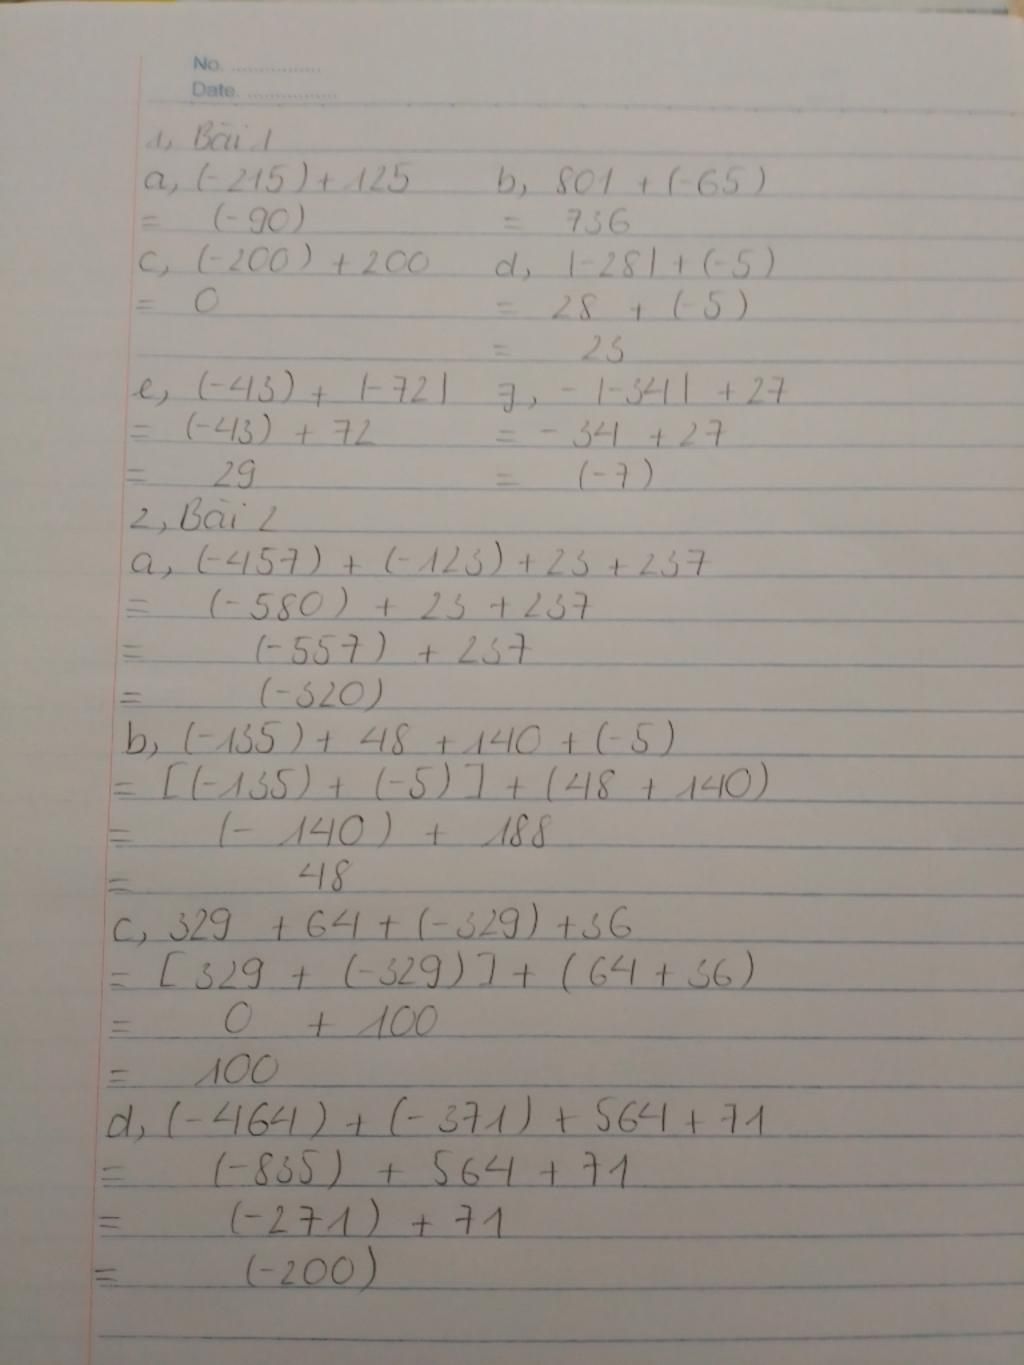 No. ................
Date. ................
1, Bài 1
a, (-215) + 125 b, 801 + (-65)
= (-90) = 736
c, (-200) + 200 d, |-28| + (-5)
= 0 = 28 + (-5)
= 23
e, (-43) + |-72| f, - |-34| + 27
= (-43) + 72 = - 34 + 27
= 29 = (-7)
2, Bài 2
a, (-457) + (-123) + 23 + 237
= (-580) + 23 + 237
= (-557) + 237
= (-320)
b, (-135) + 48 + 140 + (-5)
= [(-135) + (-5)] + (48 + 140)
= (- 140) + 188
= 48
c, 329 + 64 + (-329) + 36
= [329 + (-329)] + (64 + 36)
= 0 + 100
= 100
d, (-464) + (-371) + 564 + 71
= (-835) + 564 + 71
= (-271) + 71
= (-200)